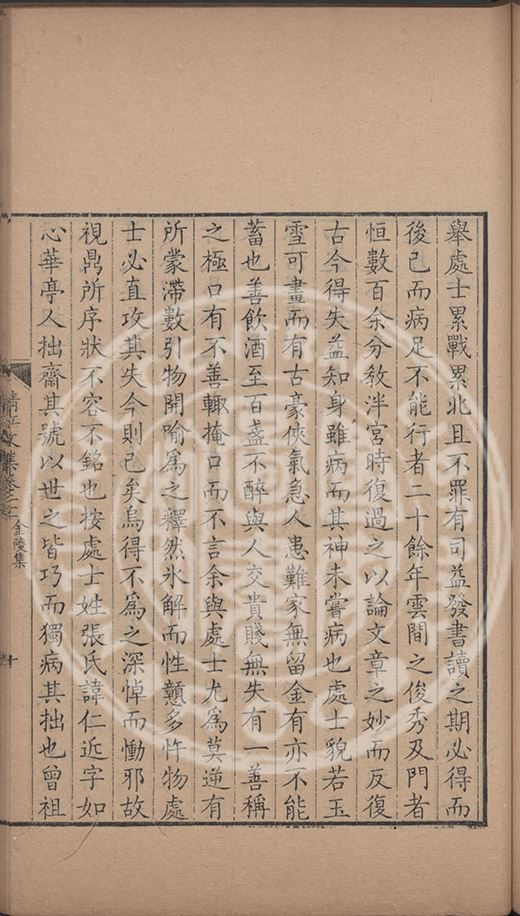 舉處士累戰累北且不罪有司益發書讀之期必得而
後已而病足不能行者二十餘年雲間之俊秀及門者
恒數百余分敎泮宮時復過之以論文章之妙而反復
古今得失益知身雖病而其神未嘗病也處士貌若玉
雪可畫而有古豪俠氣急人患難家無留金有亦不能
蓄也善飲酒至百盞不醉與人交貴賤無失有一善稱
之極口有不善輙掩口而不言余與處士尤爲莫逆有
所蒙滯數引物開喻爲之釋然氷解而性戇多忤物處
士必直攻其失今則已矣烏得不爲之深悼而慟邪故
視鼎所序狀不容不銘也按處士姓張氏諱仁近字如
心華亭人拙齋其號以世之皆巧而獨病其拙也曾祖
清江文集卷之二
金陵集